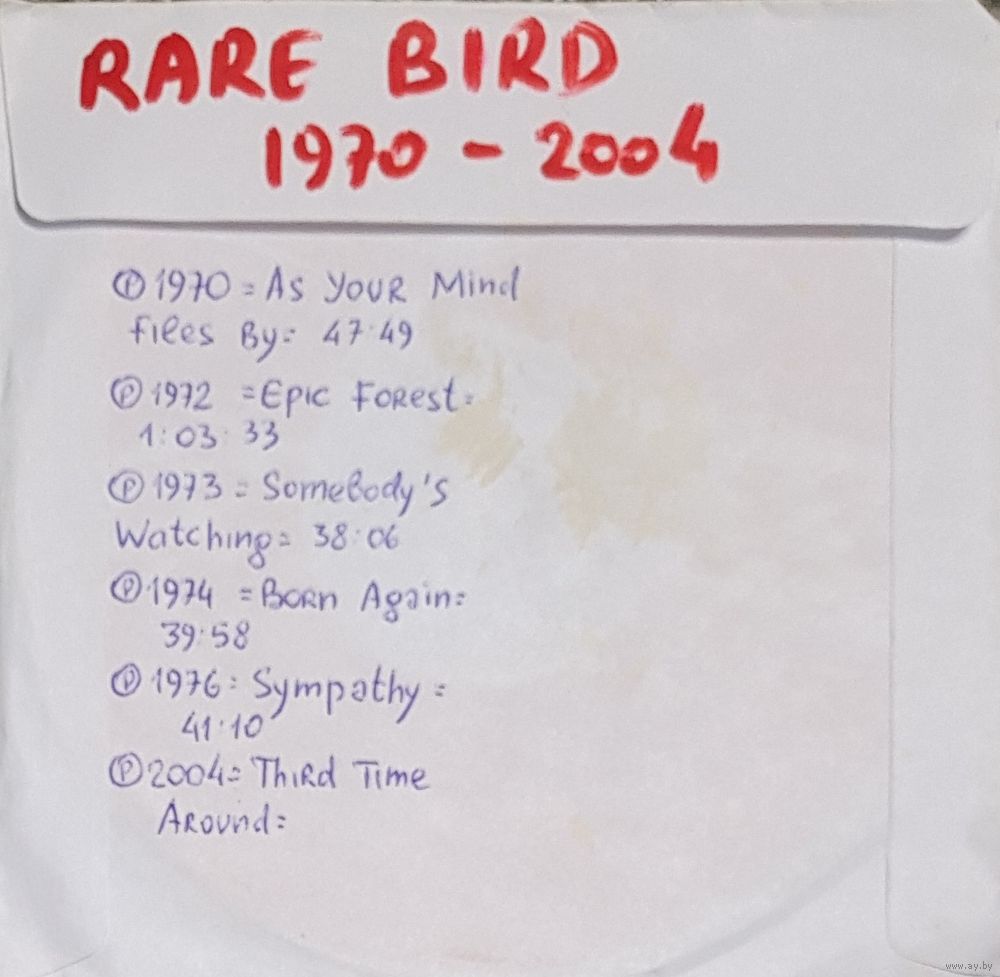 RARE BIRD
1970 - 2004
Ⓟ 1970 = As Your Mind
files By= 47:49
Ⓟ 1972 = Epic Forest=
1:03:33
Ⓟ 1973 = Somebody's
Watching= 38:06
Ⓟ 1974 = Born Again=
39:58
Ⓟ 1976= Sympathy=
41:10
Ⓟ 2004= Third Time
Around=
www.ay.by